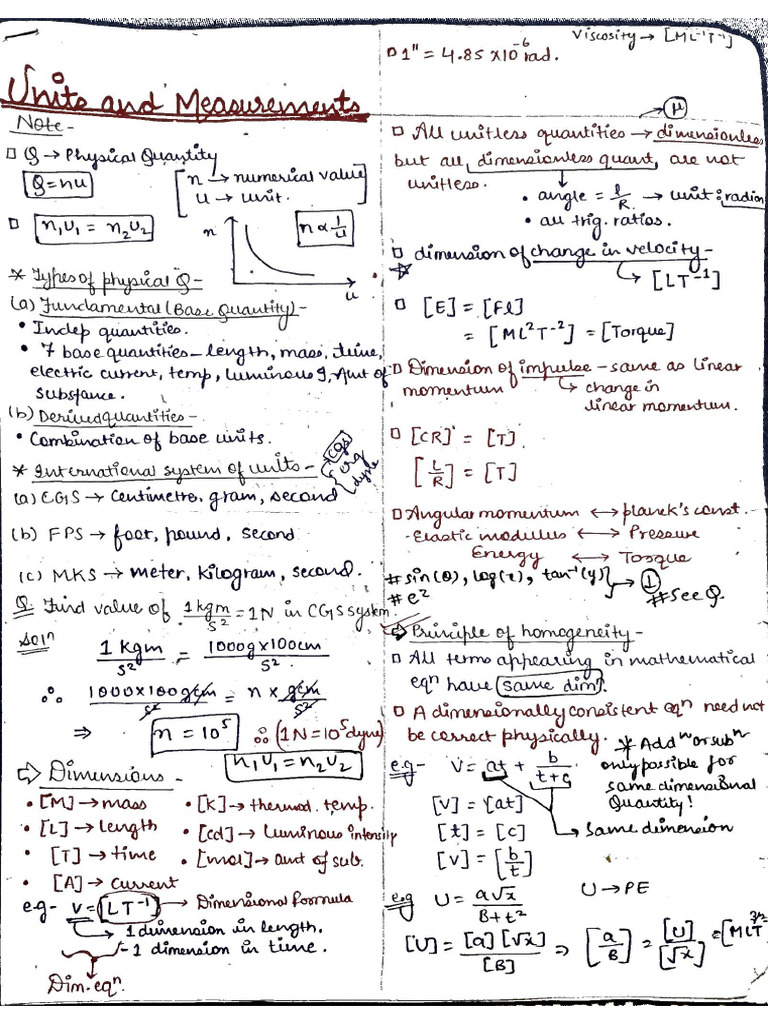 Units and Measurements
Note -
□ Q → Physical Quantity
Q = nu
[n → numerical value
u → unit.]
□ n₁u₁ = n₂u₂
n
n ∝ 1/u
u
* Types of physical Q -
(a) Fundamental (Base Quantity) -
• Indep quantities.
• 7 base quantities - length, mass, time,
electric current, temp, luminous I, Amt of
substance.
(b) Derived quantities -
• Combination of base units.
* International system of units -
cgs
erg
dyne
(a) CGS → Centimetre, gram, second
(b) FPS → foot, pound, second
(c) MKS → meter, kilogram, second.
Q. Find value of 1 kgm/s² = 1N in CGS system.
Solⁿ
1 kgm/s² = 1000g x 100cm/s²
∴ 1000 x 100 gcm/s² = n x gcm/s²
⇒ n = 10⁵ ∴ (1N = 10⁵ dyne)
n₁u₁ = n₂u₂
⇨ Dimensions -
• [M] → mass • [K] → thermod. temp.
• [L] → length • [cd] → luminous intensity
• [T] → time • [mol] → amt of sub.
• [A] → current
e.g - v = [LT⁻¹] → Dimensional formula
→ 1 dimension in length.
→ -1 dimension in time.
Dim. eqⁿ.
Viscosity → [ML⁻¹T⁻¹]
□ 1" = 4.85 x10⁻⁶ rad.
μ
□ All unitless quantities → dimensionless
but all dimensionless quant. are not
unitless.
• angle = l/R → unit : radian
• all trig. ratios.
□ dimension of change in velocity -
→ [LT⁻¹]
□ [E] = [Fl]
= [ML²T⁻²] = [Torque]
□ Dimension of impulse - same as linear
momentum → change in
linear momentum.
□ [CR] = [T].
[L/R] = [T]
□ Angular momentum ↔ planck's const.
- Elastic modulus ↔ Pressure
Energy ↔ Torque
# sin(θ), log(x), tan⁻¹(y) → 1
# e² # See Q.
⇨ Principle of homogeneity -
□ All terms appearing in mathematical
eqⁿ have same dimⁿ.
□ A dimensionally consistent eqⁿ need not
be correct physically.
* Addⁿ or subⁿ
only possible for
same dimensional
Quantity!
e.g - V = at + b/(t+c)
[V] = [at]
[t] = [c] → same dimension
[v] = [b/t]
e.g U = a√x/(B+t²) U → PE
[U] = [a][√x]/[B] ⇒ [a/B] = [U]/[√x]